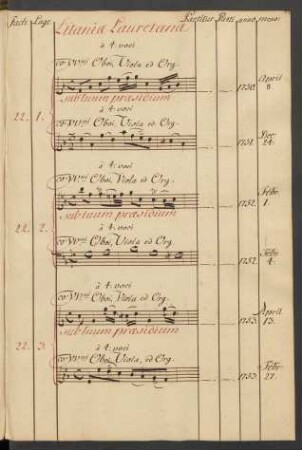 Fach: Lage.
Litania Lauretana
Partitur Part: anno mens:
à 4. voci
co VVni Oboi, Viola ed Org.
1750. April 8.
Sub tuum præsidium
22. 1.
à 4. voci
co VVni Oboi, Viola ed Org.
1751. Dec: 24.
à 4. voci
co VVni Oboi, Viola ed Org.
1752. Febr: 1.
Sub tuum præsidium
22. 2.
à 4. voci
co VVni Oboi, Viola ed Org.
1752. Febr: 4.
à 4. voci
co VVni Oboi, Viola ed Org.
1753. April 13.
Sub tuum præsidium
22. 3.
à 4. voci
co VVni Oboi, Viola, ed Org.
1753. Febr: 27.